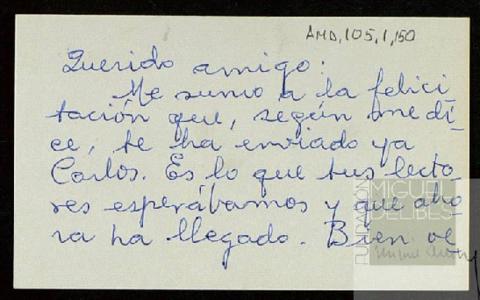 AMD, 105, 1, 150
Querido amigo:
Me sumo a la felici-
tación que, según me di-
ce, te ha enviado ya
Carlos. Es lo que tus lecto-
res esperábamos y que aho-
ra ha llegado. Bien ve
FUNDACIÓN
MIGUEL
DELIBES